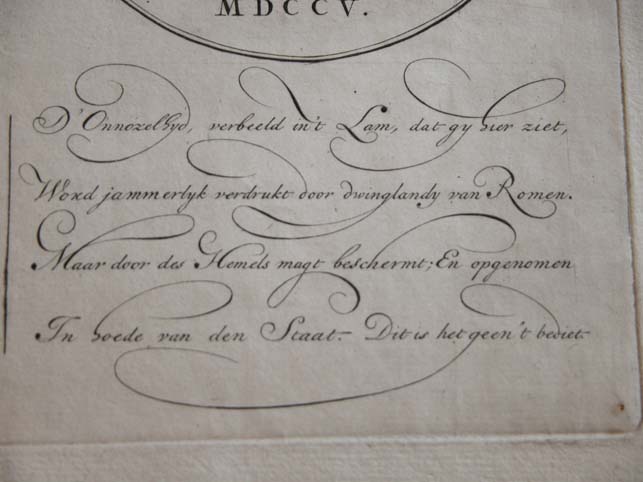 MDCCV.
D'Onnozelhyd, verbeeld in't Lam, dat gy hier ziet,
Word jammerlyk verdrukt door dwinglandy van Romen.
Maar door des Hemels magt beschermt; En opgenomen
In hoede van den Staat. Dit is het geen 't bediet.